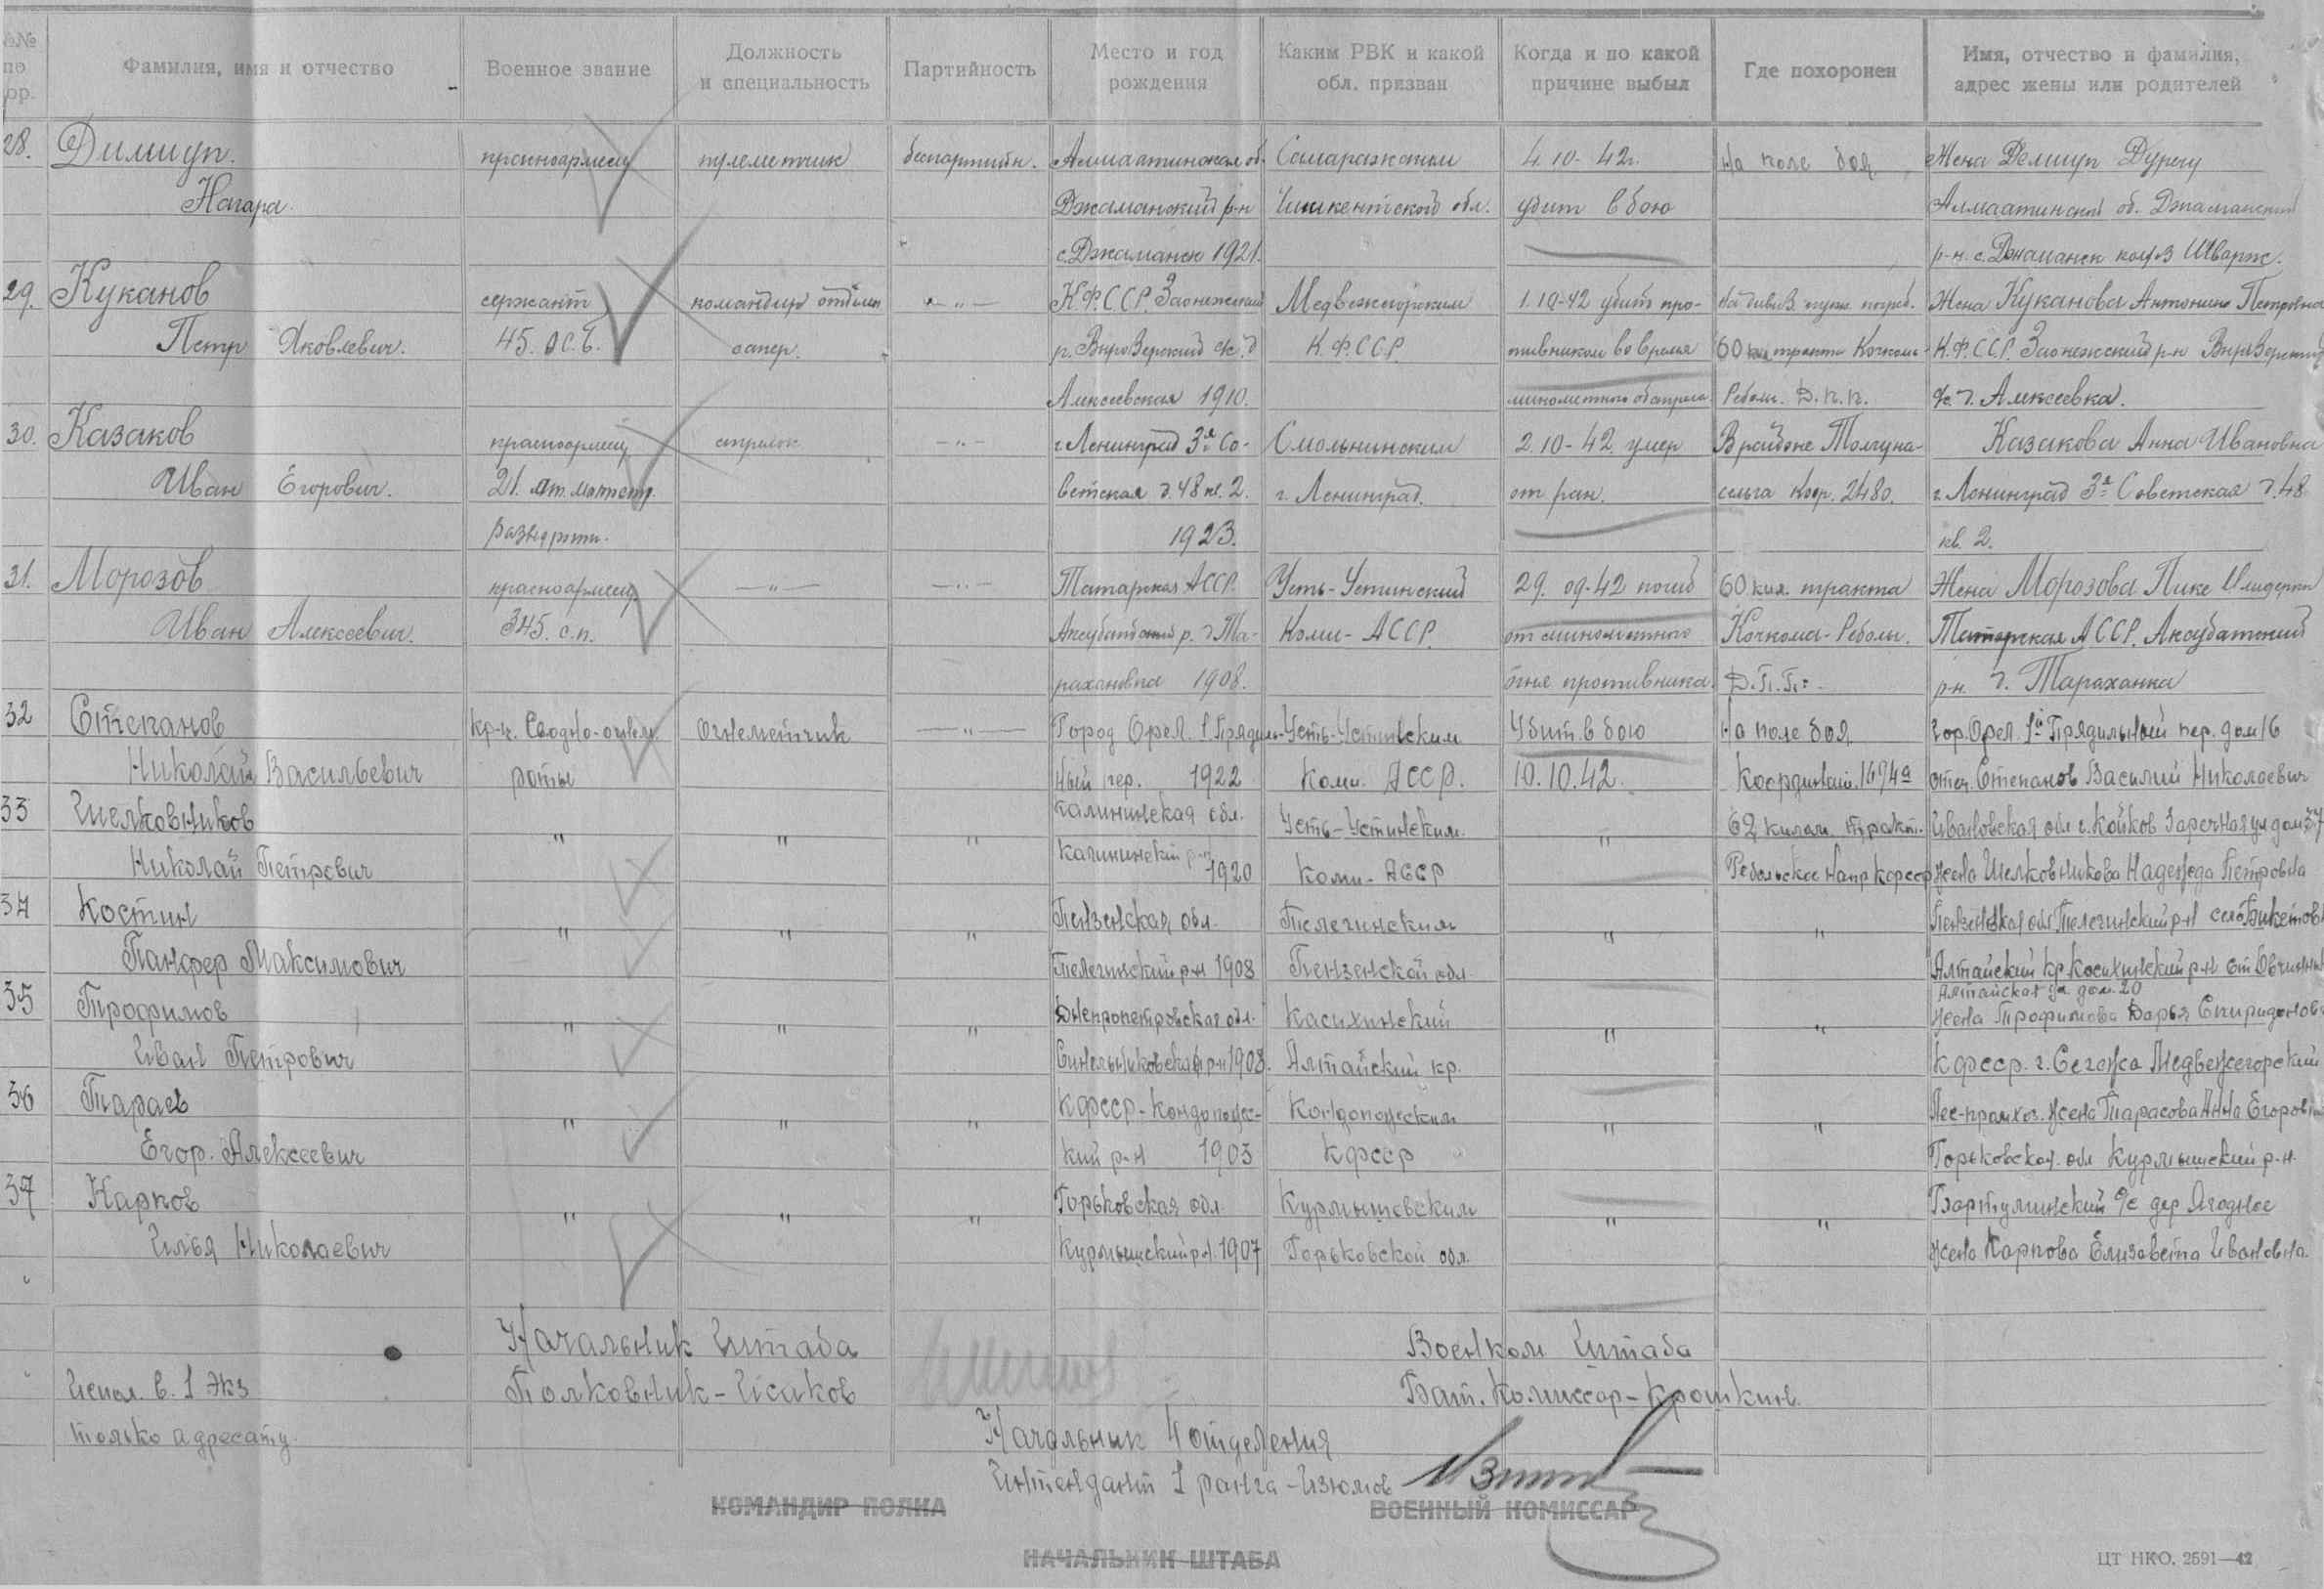 №№ по ор. | Фамилия, имя и отчество | Военное звание | Должность и специальность | Партийность | Место и год рождения | Каким РВК и какой обл. призван | Когда и по какой причине выбыл | Где похоронен | Имя, отчество и фамилия, адрес жены или родителей
28. Димиуп. красноармеец пулеметчик беспартийн. Алмаатинская об. 4. 10- 42г. На поле боя. Жена
Нагара. Джаманский р-н Чимкентской обл. убит в бою Алмаатинской об. Джаманский
с. Джаманск 1921. р-н. с. Джаманск
29. Куканов сержант командир отделен —„— К.Ф.С.С.Р. Заонежский Медвежегорским 1. 10-42 убит про- Жена Куканова Антонина Петровна
Петр Яковлевич. 45. О.С.Б. сапер. К.Ф.С.С.Р. тивником во время 60 км тракта Кочкома- К.Ф.С.С.Р. Заонежский р-н
Алексеевская 1910. минометного обстрела Реболы. Д.П.П. Алексеевка.
30. Казаков красноармеец стрелок —„— г. Ленинград 3я Со- Смольнинским 2. 10-42. умер В районе Казакова Анна Ивановна
Иван Егорович. 21. ветская д. 48 кв. 2. г. Ленинград. от ран. сельга Коор. 2480. г. Ленинград 3я Советская д. 48
развед роты. 1923. кв. 2.
31. Морозов красноармеец —„— —„— Татарская АССР. Усть-Устинский 29. 09-42 погиб 60 км. тракта Жена Морозова
Иван Алексеевич. 345. с.п. р. д. Та- Коми-АССР. от минометного Кочкома-Реболы. Татарская АССР.
рахановка 1908. огня противника. Д.П.П. р-н. д. Тараханка
32 Степанов кр-ц. Сводно-огнем. Огнеметчик —„— Город Орел. 1 Прядиль- Усть-Устинским Убит в бою На поле боя гор. Орел. 1й Прядильный пер. дом 16
Николай Васильевич роты ный пер. 1922 Коми. АССР. 10.10.42. 1694а отец Степанов Василий Николаевич
33 Шелковников " " " Калининская обл. Усть-Устинским. " 62 килом. тракт. Ивановская обл Заречная ул дом 37
Николай Петрович Калининский р-н 1920 Коми-АССР Ребольское напр КФССР жена Шелковникова Надежда Петровна
34 Костин " " " Пензенская обл. Телегинским " " Пензенская обл. Телегинский р-н село
Панфер Максимович Телегинский р-н 1908 Пензенской обл Алтайский кр. Косихинский р-н
Алтайская ул дом. 20
35 Трофимов " " " Днепропетровская обл. Касихинский " " жена Трофимова Дарья Спиридонов
Иван Петрович р-н 1908. Алтайский кр. КФССР. г. Сегежа Медвежегорский
36 Тараев " " " КФССР-Кондопожс- Кондопожским " " жена Тарасова Анна Егоровна
Егор. Алексеевич кий р-н 1903 КФССР Горьковская обл Курмышский р-н.
37 Карпов " " " Горьковская обл. Курмышевским " " дер Ягодное
Илья Николаевич Курмышский р-н. 1907 Горьковской обл. жена Карпова Елизавета Ивановна.
Начальник Штаба Военком Штаба
Испол. в. 1 экз Полковник-Исаков Бат. Комиссар-Крошкин
только адресату. Начальник 4 отделения
Интендант 1 ранга-Изюмов
КОМАНДИР ПОЛКА ВОЕННЫЙ КОМИССАР
НАЧАЛЬНИК ШТАБА
ЦТ НКО. 2591—42